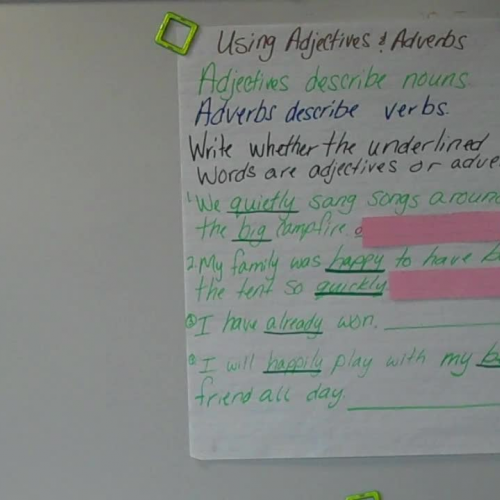 Using Adjectives & Adverbs
Adjectives describe nouns.
Adverbs describe verbs.
Write whether the underlined
words are adjectives or adve
1. We quietly sang songs around
the big campfire.
2. My family was happy to have b
the tent so quickly
③ I have already won.
④ I will happily play with my b
friend all day.